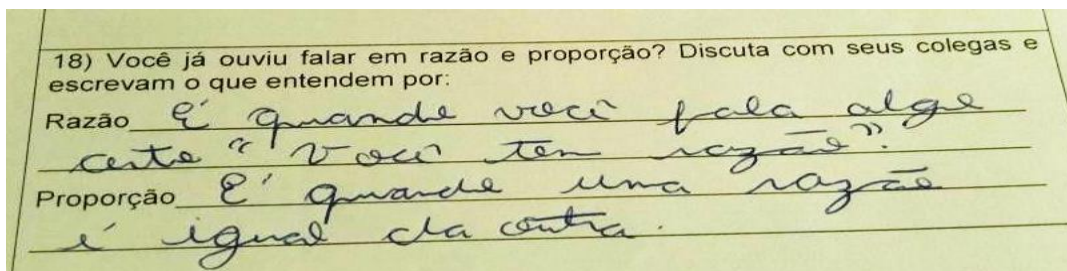 18) Você já ouviu falar em razão e proporção? Discuta com seus colegas e
escrevam o que entendem por:
Razão É quando você fala algo
certo "Você tem razão".
Proporção É quando uma razão
é igual da outra.